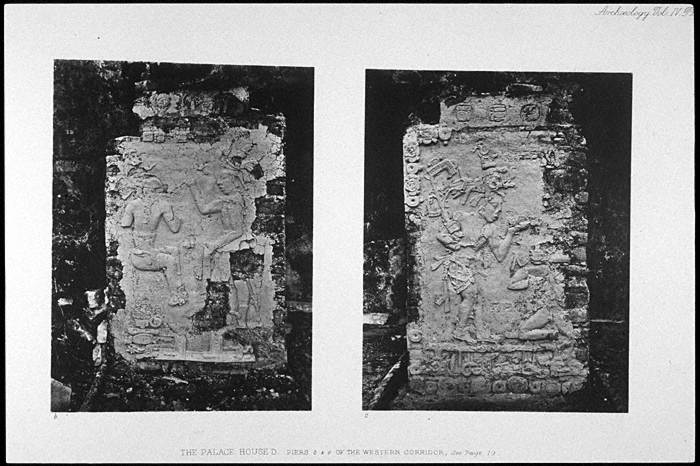 Archæology Vol. IV.
b
c
THE PALACE HOUSE D. PIERS b & c OF THE WESTERN CORRIDOR, See Page 19.